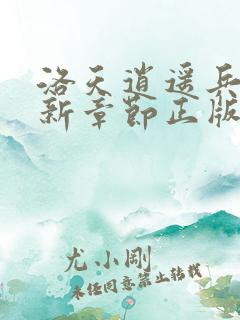 洛天逍遥兵
新章节正版
尤小刚
未经同意禁止转载